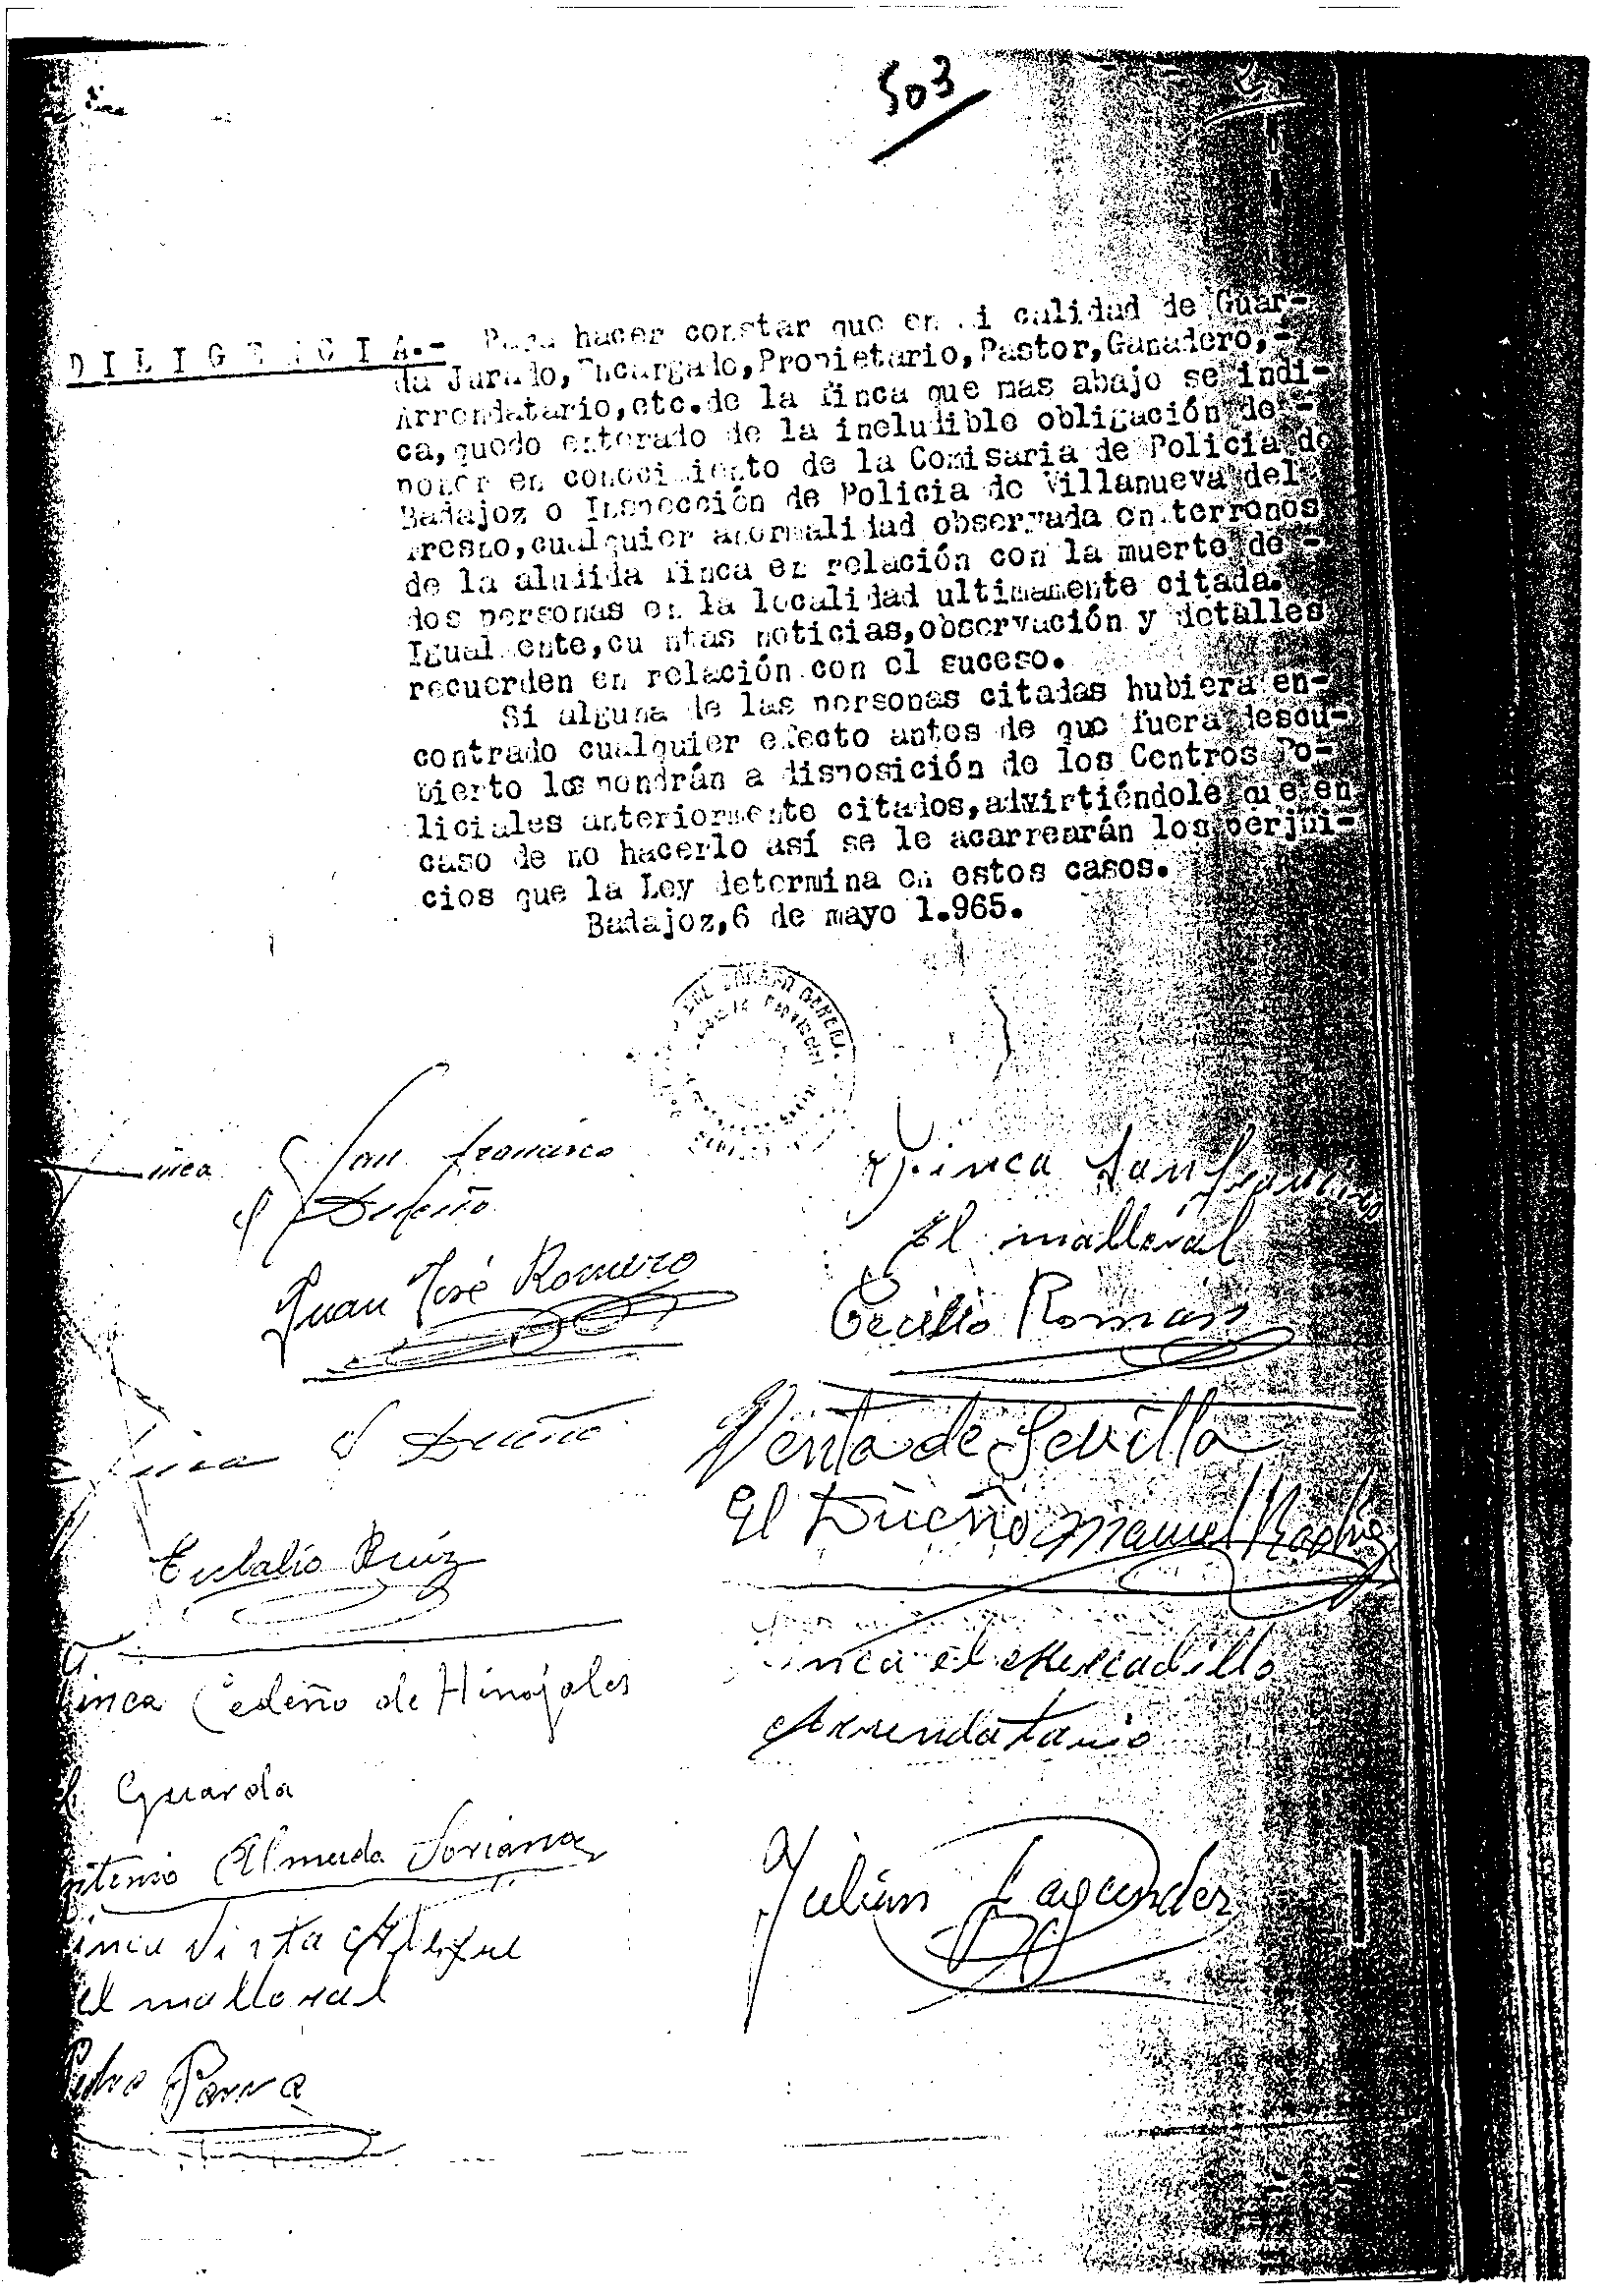 503
D I L I G E N C I A.- Para hacer constar que en mi calidad de Guar-
da Jurado, Encargado, Propietario, Pastor, Ganadero,-
Arrendatario, etc. de la finca que mas abajo se indi-
ca, quedo enterado de la ineludible obligación de -
poner en conocimiento de la Comisaria de Policia de
Badajoz o Inspección de Policia de Villanueva del
Fresno, cualquier anormalidad observada en terrenos
de la aludida finca en relación con la muerte de -
dos personas en la localidad ultimamente citada.
Igualmente, cuantas noticias, observación y detalles
recuerden en relación con el suceso.
Si alguna de las personas citadas hubiera en-
contrado cualquier efecto antes de que fuera descu-
bierto los pondrán a disposición de los Centros Po-
liciales anteriormente citados, advirtiéndole que en
caso de no hacerlo así se le acarrearán los perjui-
cios que la Ley determina en estos casos.
Badajoz, 6 de mayo 1.965.
Finca San Francisco
el Dueño
Juan José Romero
Finca San Francisco
El malloral
Cecilio Román
Finca el Dueño
Eulalio Ruiz
Venta de Sevilla
El Dueño Manuel
Finca Cedeño de Hinojales
el Guarda
Antonio Almeda Soriano
Finca el Mercadillo
Arrendatario
Julian
Finca Vista Alegre
el malloral
Pedro Parra